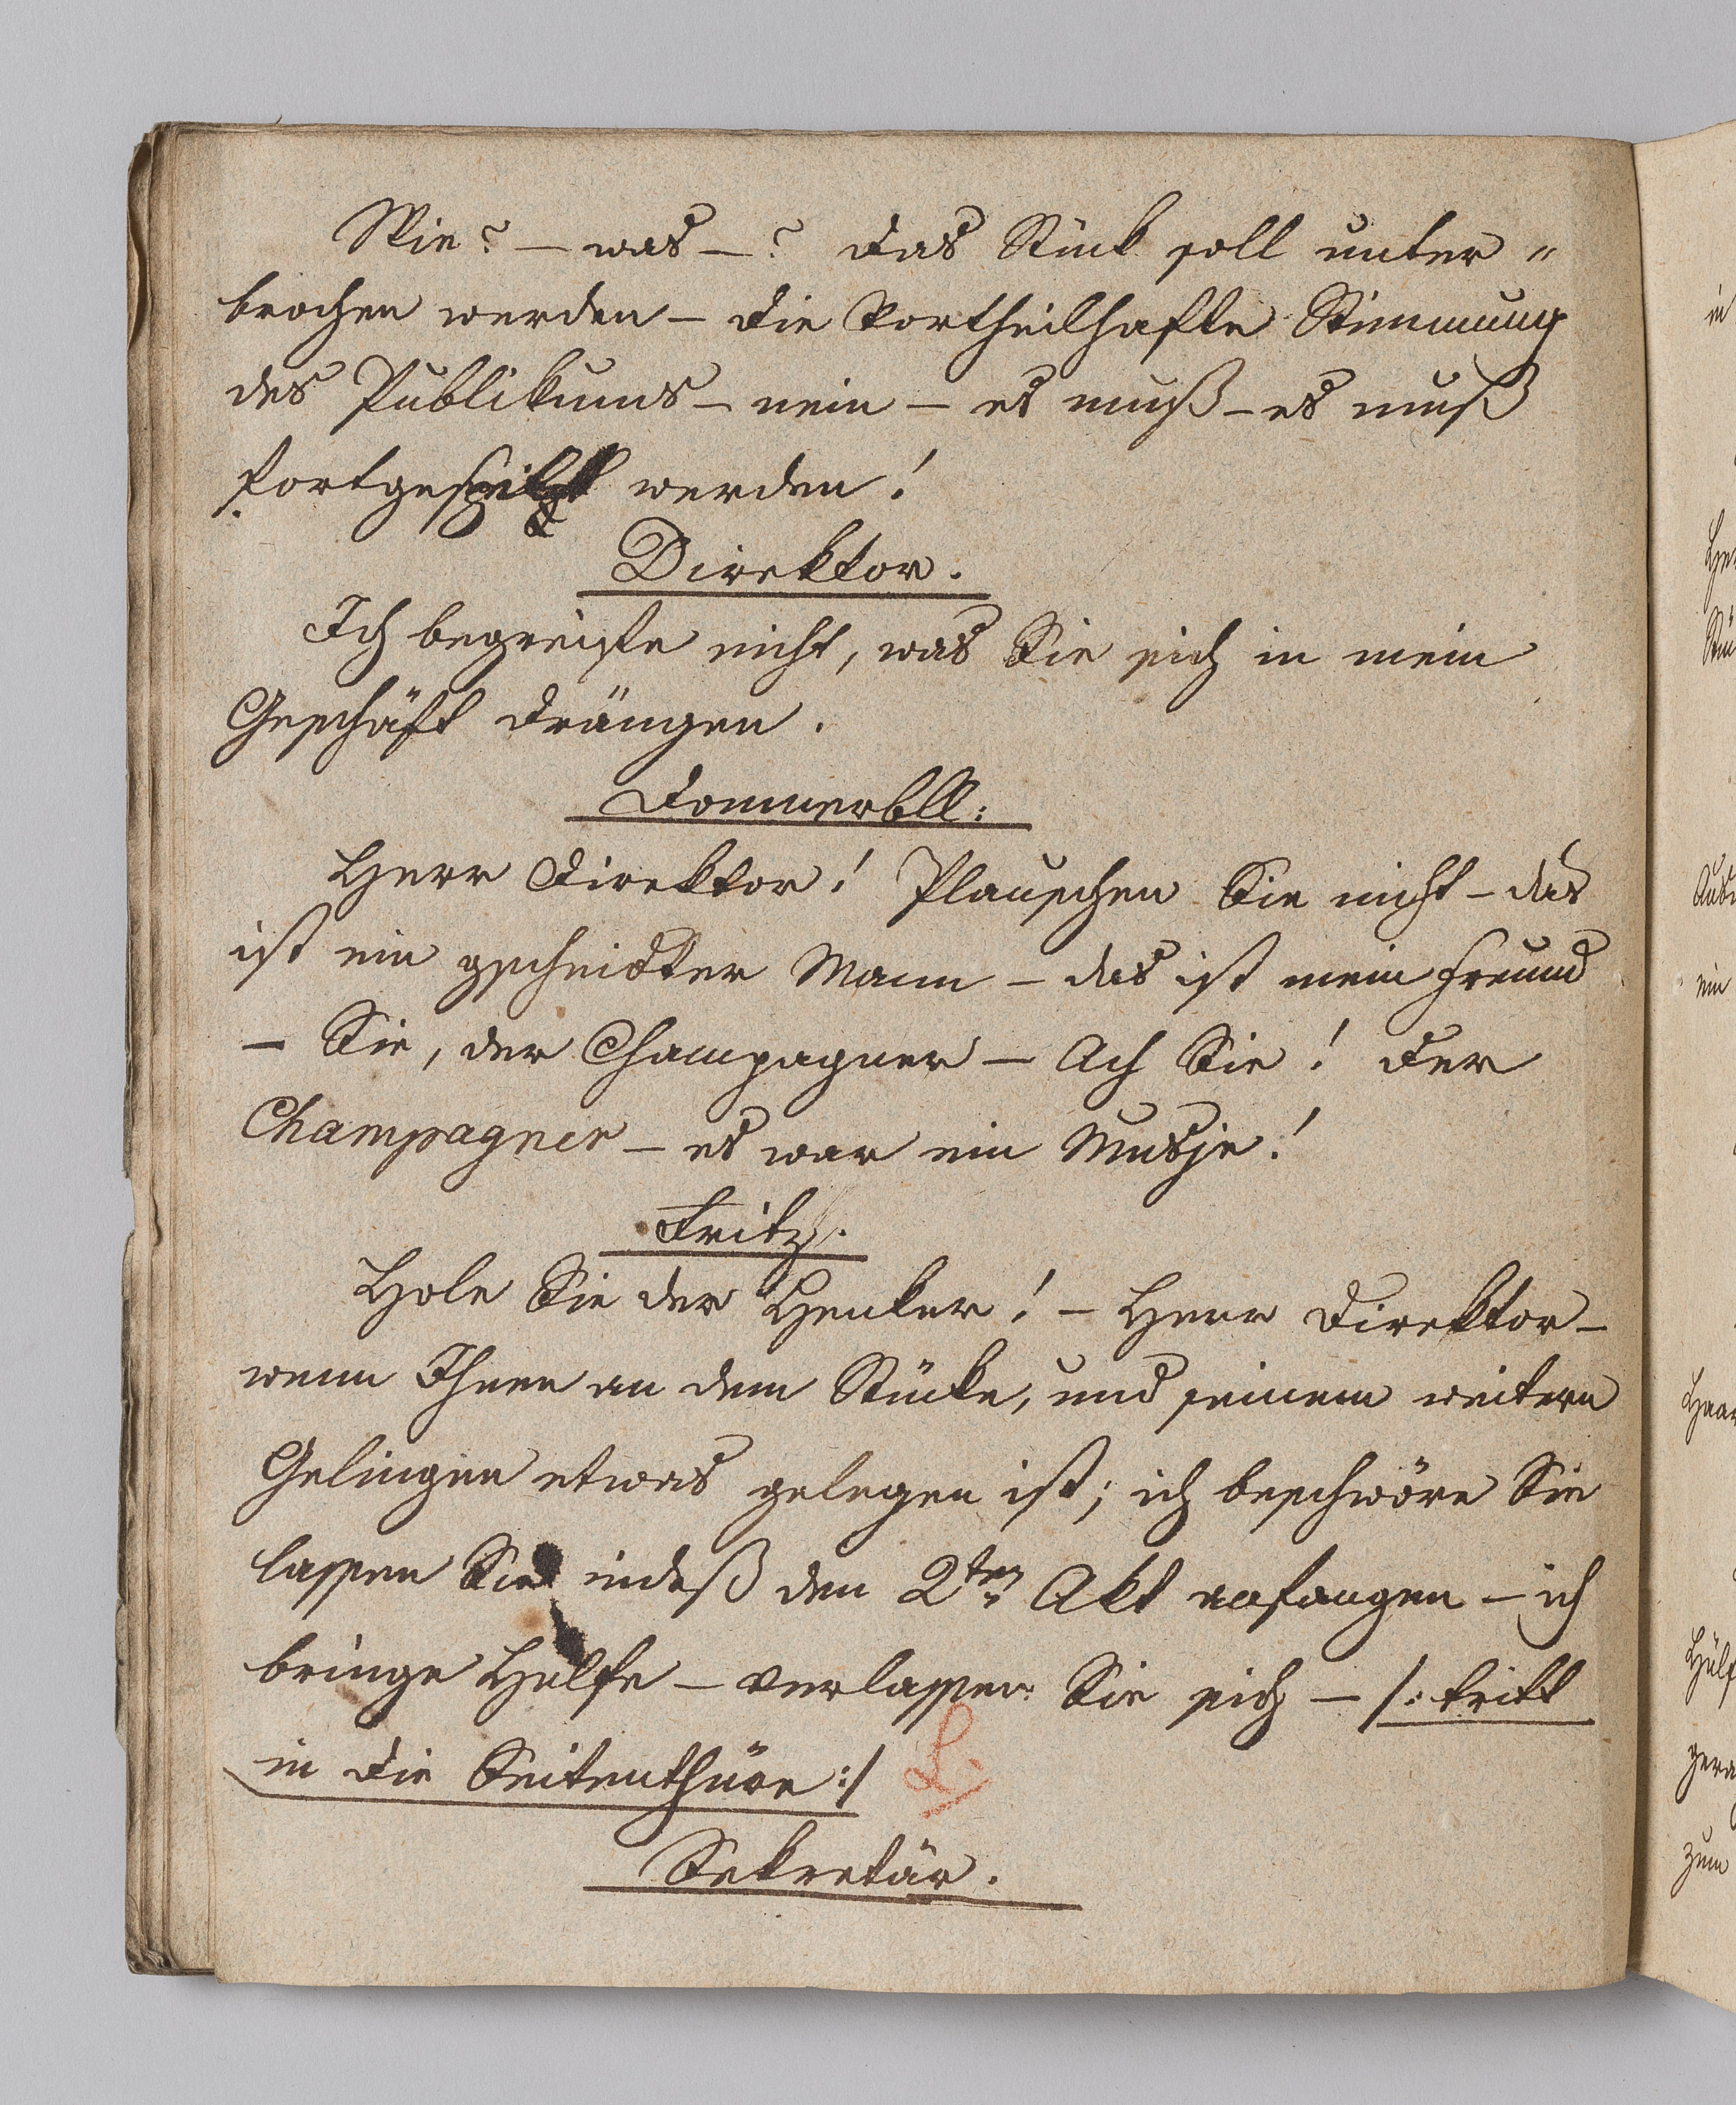 Wie? – was –? das Stück soll unter"
brochen werden – die Vortheilhafte Stimmung
des Publikums – nein – es muß – es muß
fortgespielt werden!
Direktor.
Ich begreiffe nicht, was Sie sich in mein
Geschäft drängen.
Donnerbll:
Herr Direktor! Plauschen Sie nicht – das
ist ein gscheidter Mann – das ist mein Freund
– Sie, der Champagner – Ach Sie! der
Champagner – es war ein Musje!
Fritz.
Hole Sie der Henker! – Herr Direktor –
wenn Ihnen an dem Stücke, und seinem weitern
Gelingen etwas gelegen ist; ich beschwöre Sie
lassen Sie indeß den 2ten Akt anfangen – ich
bringe Hülfe – verlassen Sie sich – /: tritt
in die Seitenthüre :/ L.
Sekretär.